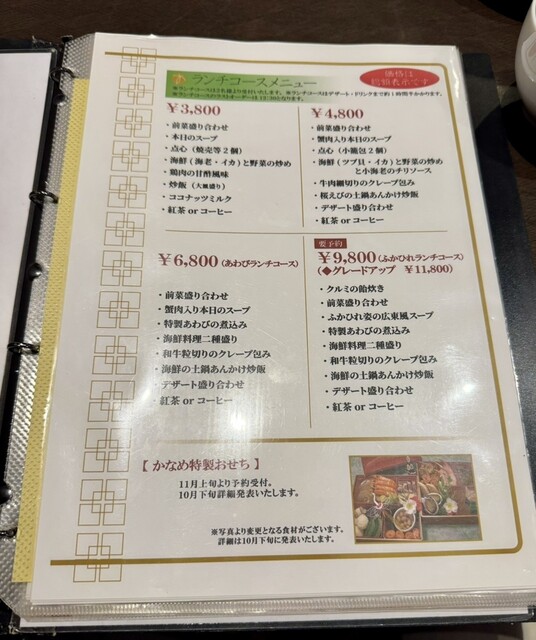 ランチコースメニュー
※ランチコースは2名様より受付いたします。※ランチコースはデザート・ドリンクまで約1時間半かかります。
※ランチコースのラストオーダーは13:30となります。
価格は
総額表示です
¥3,800
・前菜盛り合わせ
・本日のスープ
・点心（焼売等2個）
・海鮮（海老・イカ）と野菜の炒め
・鶏肉の甘酢風味
・炒飯（大皿盛り）
・ココナッツミルク
・紅茶 or コーヒー
¥4,800
・前菜盛り合わせ
・蟹肉入り本日のスープ
・点心（小籠包2個）
・海鮮（ツブ貝・イカ）と野菜の炒め
と小海老のチリソース
・牛肉細切りのクレープ包み
・桜えびの土鍋あんかけ炒飯
・デザート盛り合わせ
・紅茶 or コーヒー
¥6,800（あわびランチコース）
・前菜盛り合わせ
・蟹肉入り本日のスープ
・特製あわびの煮込み
・海鮮料理二種盛り
・和牛粒切りのクレープ包み
・海鮮の土鍋あんかけ炒飯
・デザート盛り合わせ
・紅茶 or コーヒー
要予約
¥9,800（ふかひれランチコース）
（◆グレードアップ ¥11,800）
・クルミの飴炊き
・前菜盛り合わせ
・ふかひれ姿の広東風スープ
・特製あわびの煮込み
・海鮮料理二種盛り
・和牛粒切りのクレープ包み
・海鮮の土鍋あんかけ炒飯
・デザート盛り合わせ
・紅茶 or コーヒー
【かなめ特製おせち】
11月上旬より予約受付。
10月下旬詳細発表いたします。
※写真より変更となる食材がございます。
詳細は10月下旬に発表いたします。